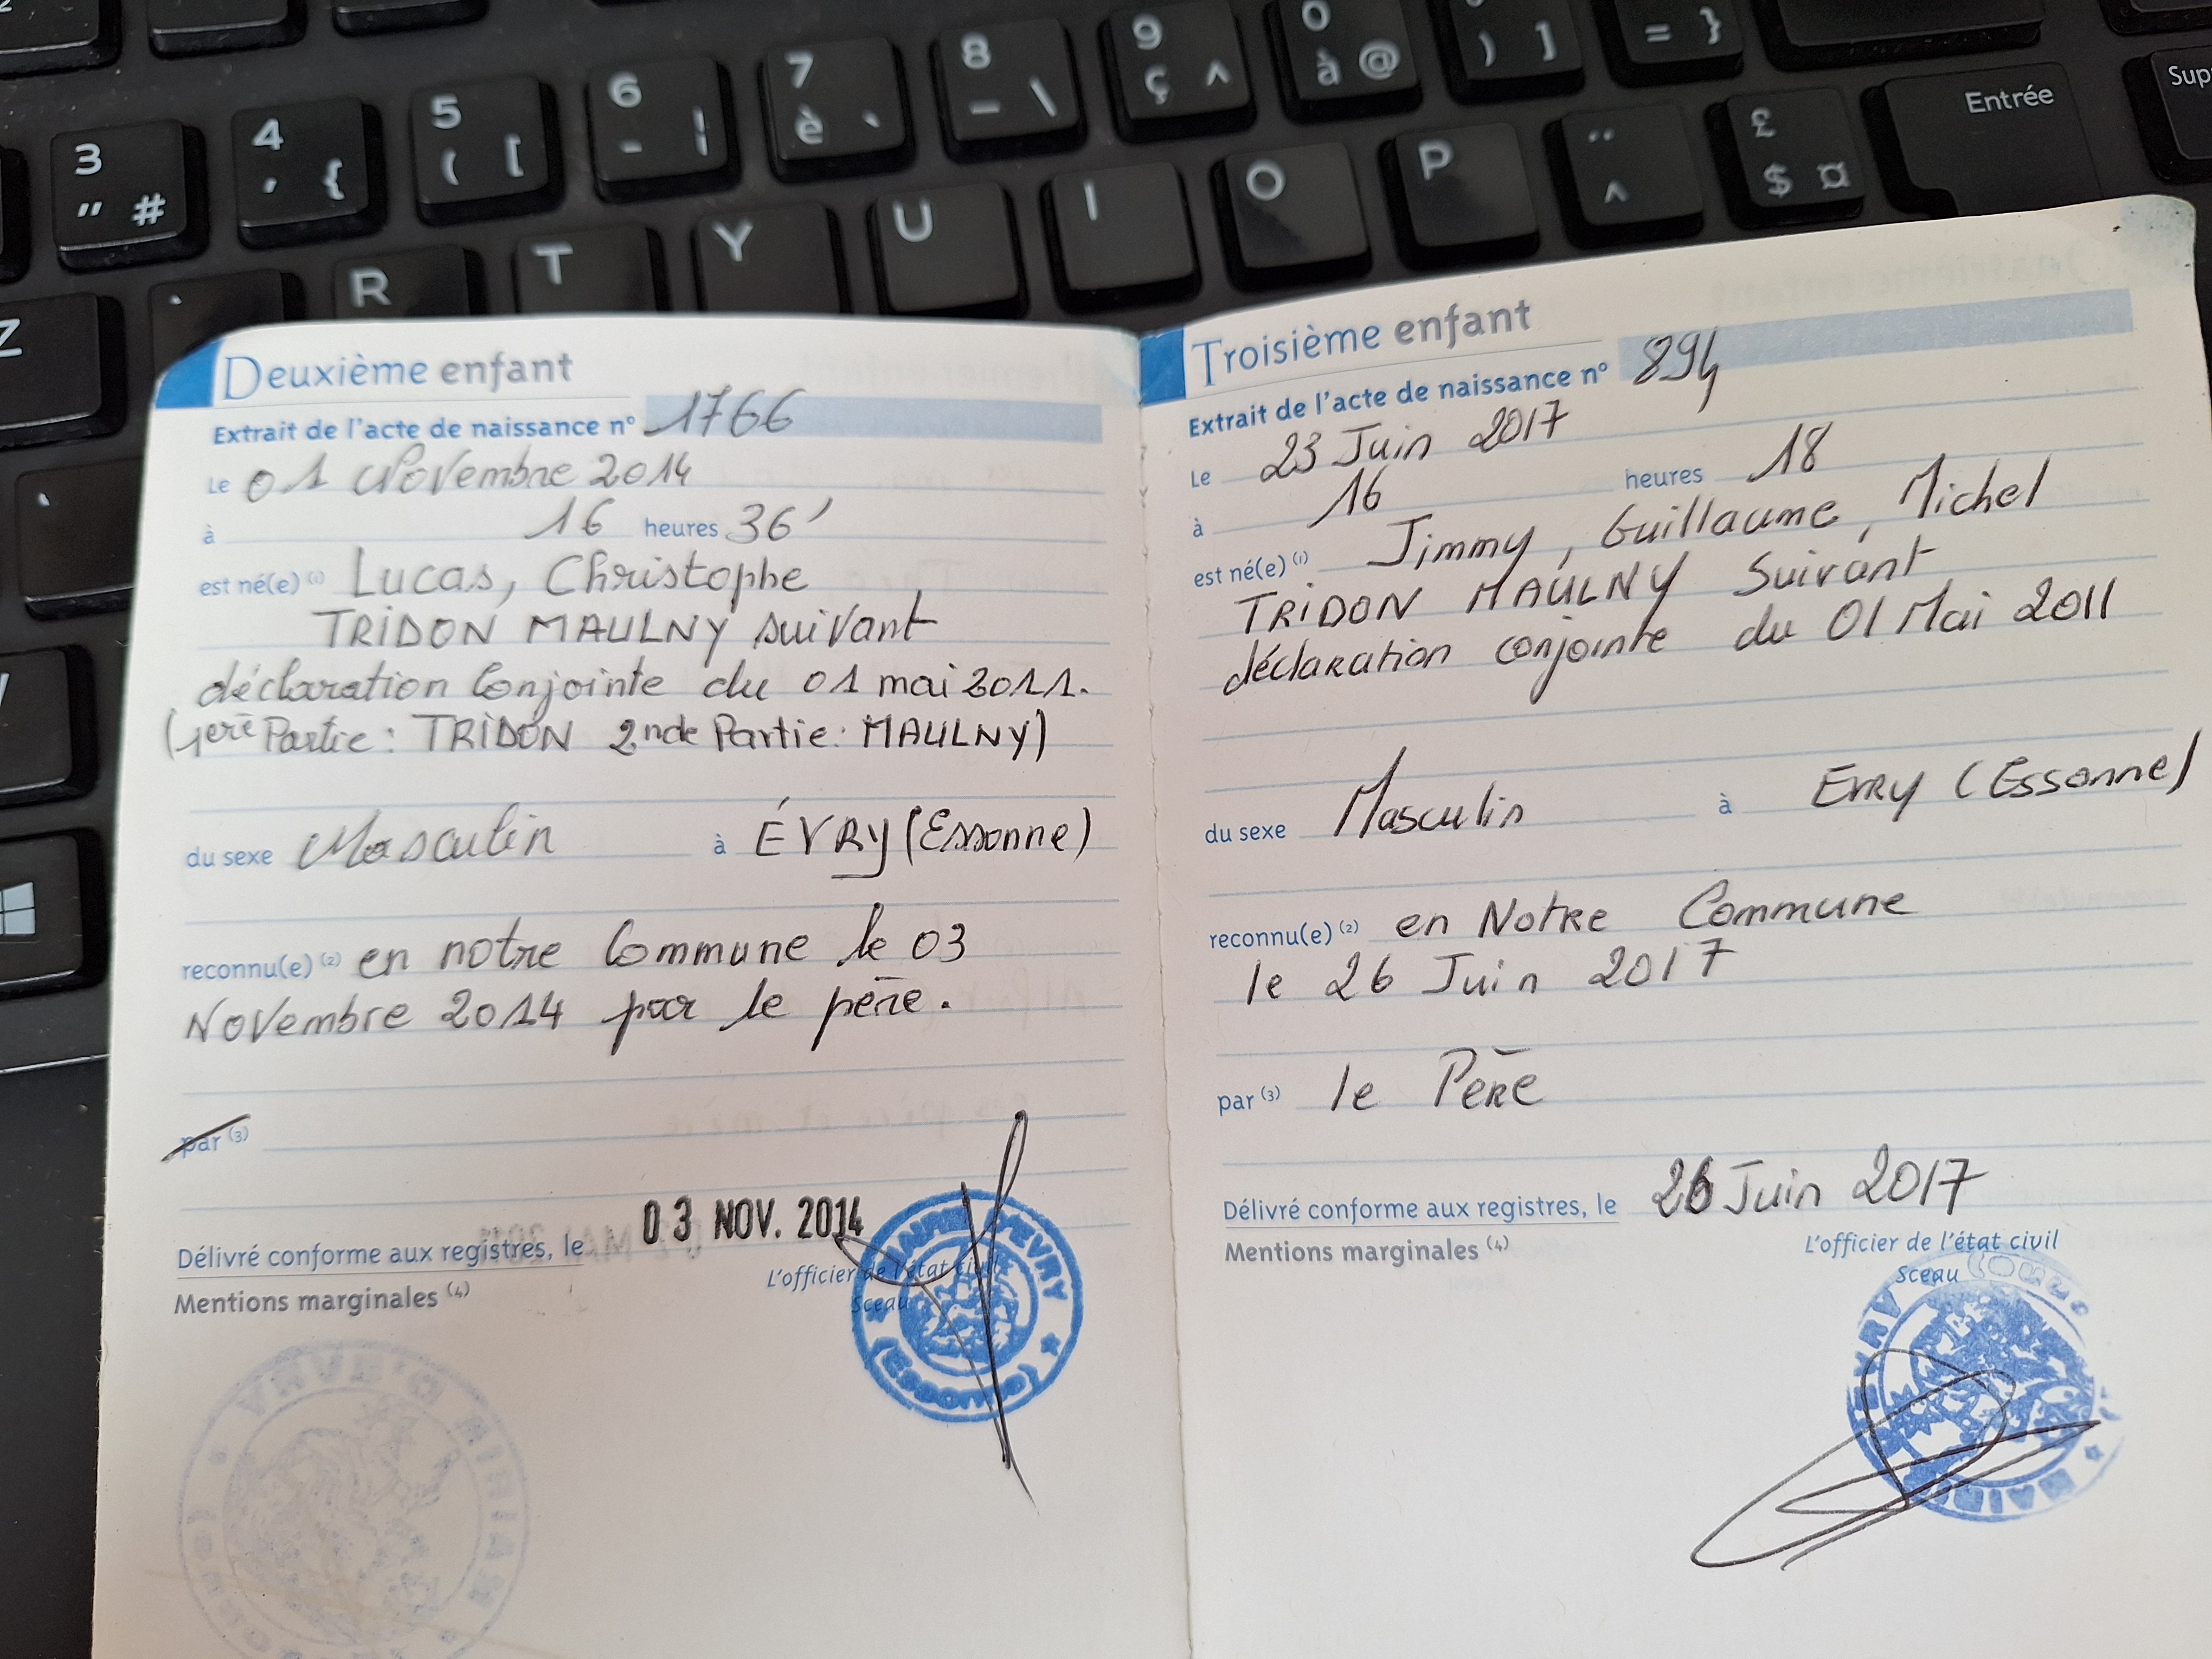 3 " #
4 ' {
5 ( [
6 - |
7 è `
8 _ \
9 ç ^
0 à @
) ]
= }
Entrée
Z R T Y U I O P
¨ ^
£ $ ¤
Deuxième enfant
Extrait de l'acte de naissance n° 1766
Le 01 Novembre 2014
à 16 heures 36'
est né(e) (1) Lucas, Christophe
TRIDON MAULNY suivant
déclaration Conjointe du 01 mai 2011.
(1ère Partie : TRIDON 2nde Partie : MAULNY)
du sexe Masculin à ÉVRY (Essonne)
reconnu(e) (2) en notre Commune le 03
Novembre 2014 par le père.
par (3)
Délivré conforme aux registres, le 03 NOV. 2014
Mentions marginales (4)
L'officier de l'état civil
Sceau
MAIRIE D'EVRY
(Essonne)
Troisième enfant
Extrait de l'acte de naissance n° 894
Le 23 Juin 2017
à 16 heures 18
est né(e) (1) Jimmy, Guillaume, Michel
TRIDON MAULNY Suivant
déclaration conjointe du 01 Mai 2011
du sexe Masculin à EVRY (Essonne)
reconnu(e) (2) en Notre Commune
le 26 Juin 2017
par (3) le Père
Délivré conforme aux registres, le 26 Juin 2017
Mentions marginales (4)
L'officier de l'état civil
Sceau